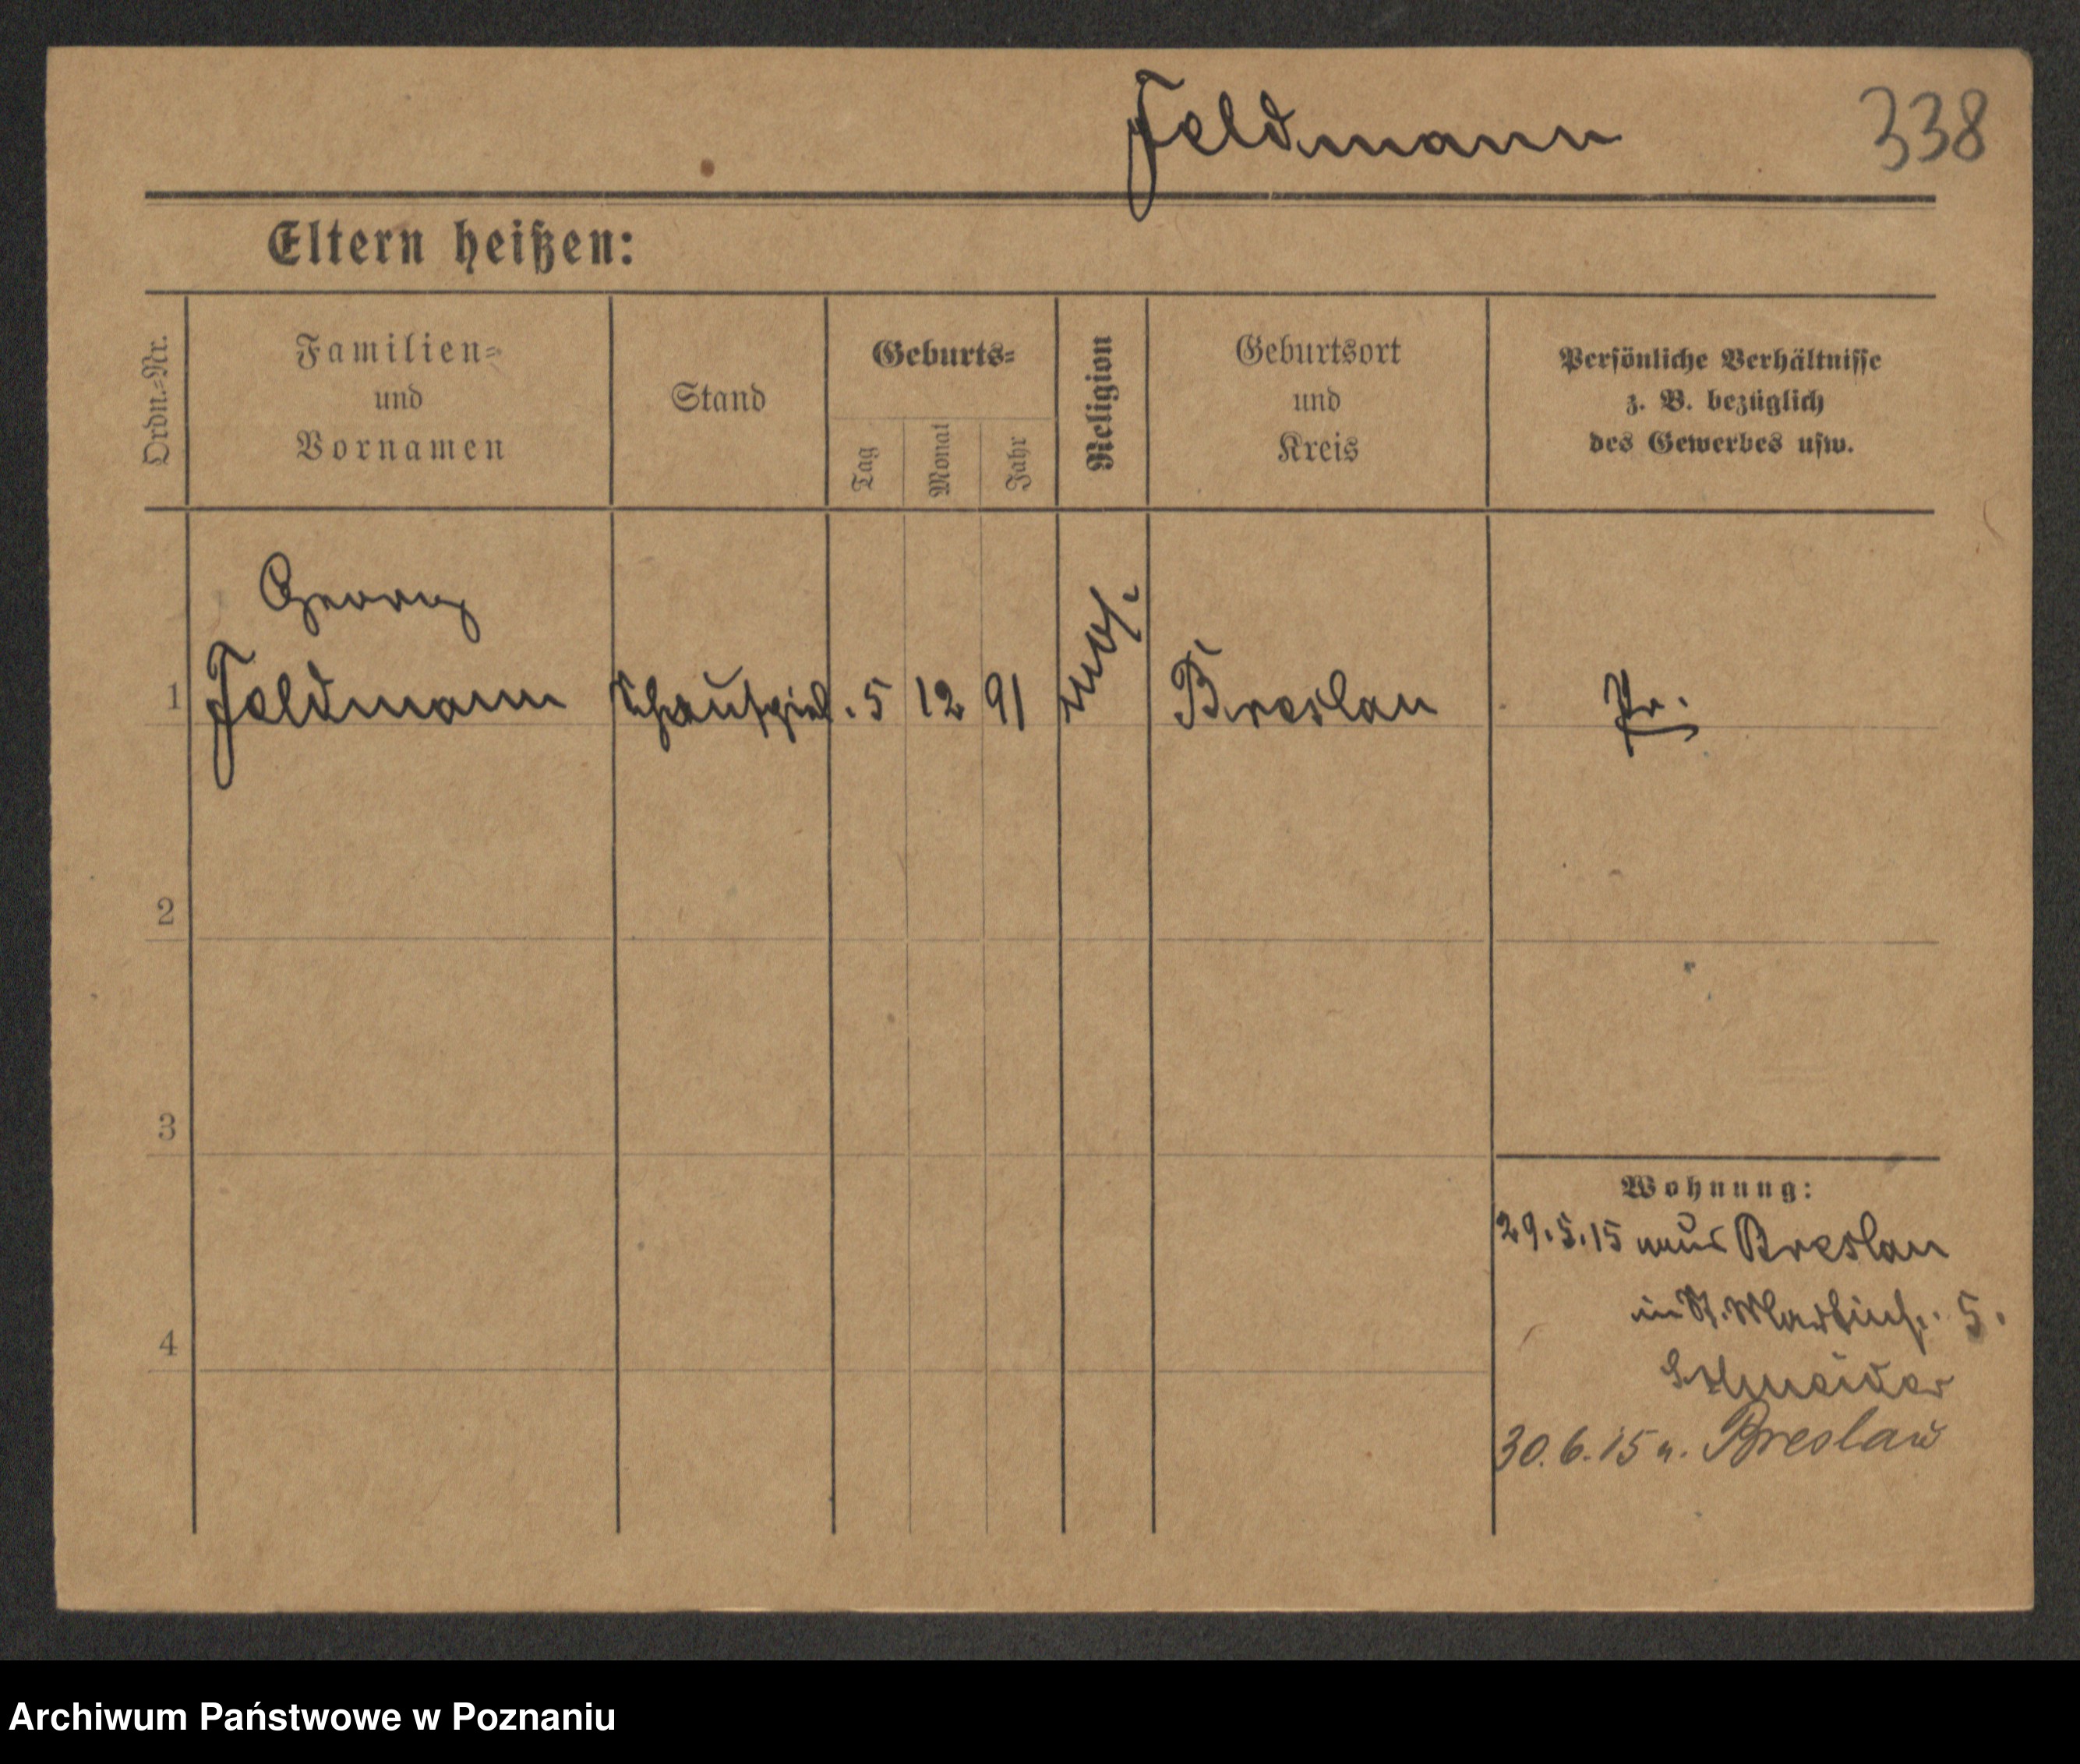 Feldmann 338
Eltern heißen:
Ordn.-Nr.
Familien-
und
Vornamen
Stand
Geburts-
Tag
Monat
Jahr
Religion
Geburtsort
und
Kreis
Persönliche Verhältnisse
z. B. bezüglich
des Gewerbes usw.
Georg
1 Feldmann Schauspiel. 5 12 91 mos. Breslau Pr.
2
3
4
Wohnung:
29.5.15 aus Breslau
in St. Martinstr. 5.
Schneider
30.6.15 n. Breslau
Archiwum Państwowe w Poznaniu